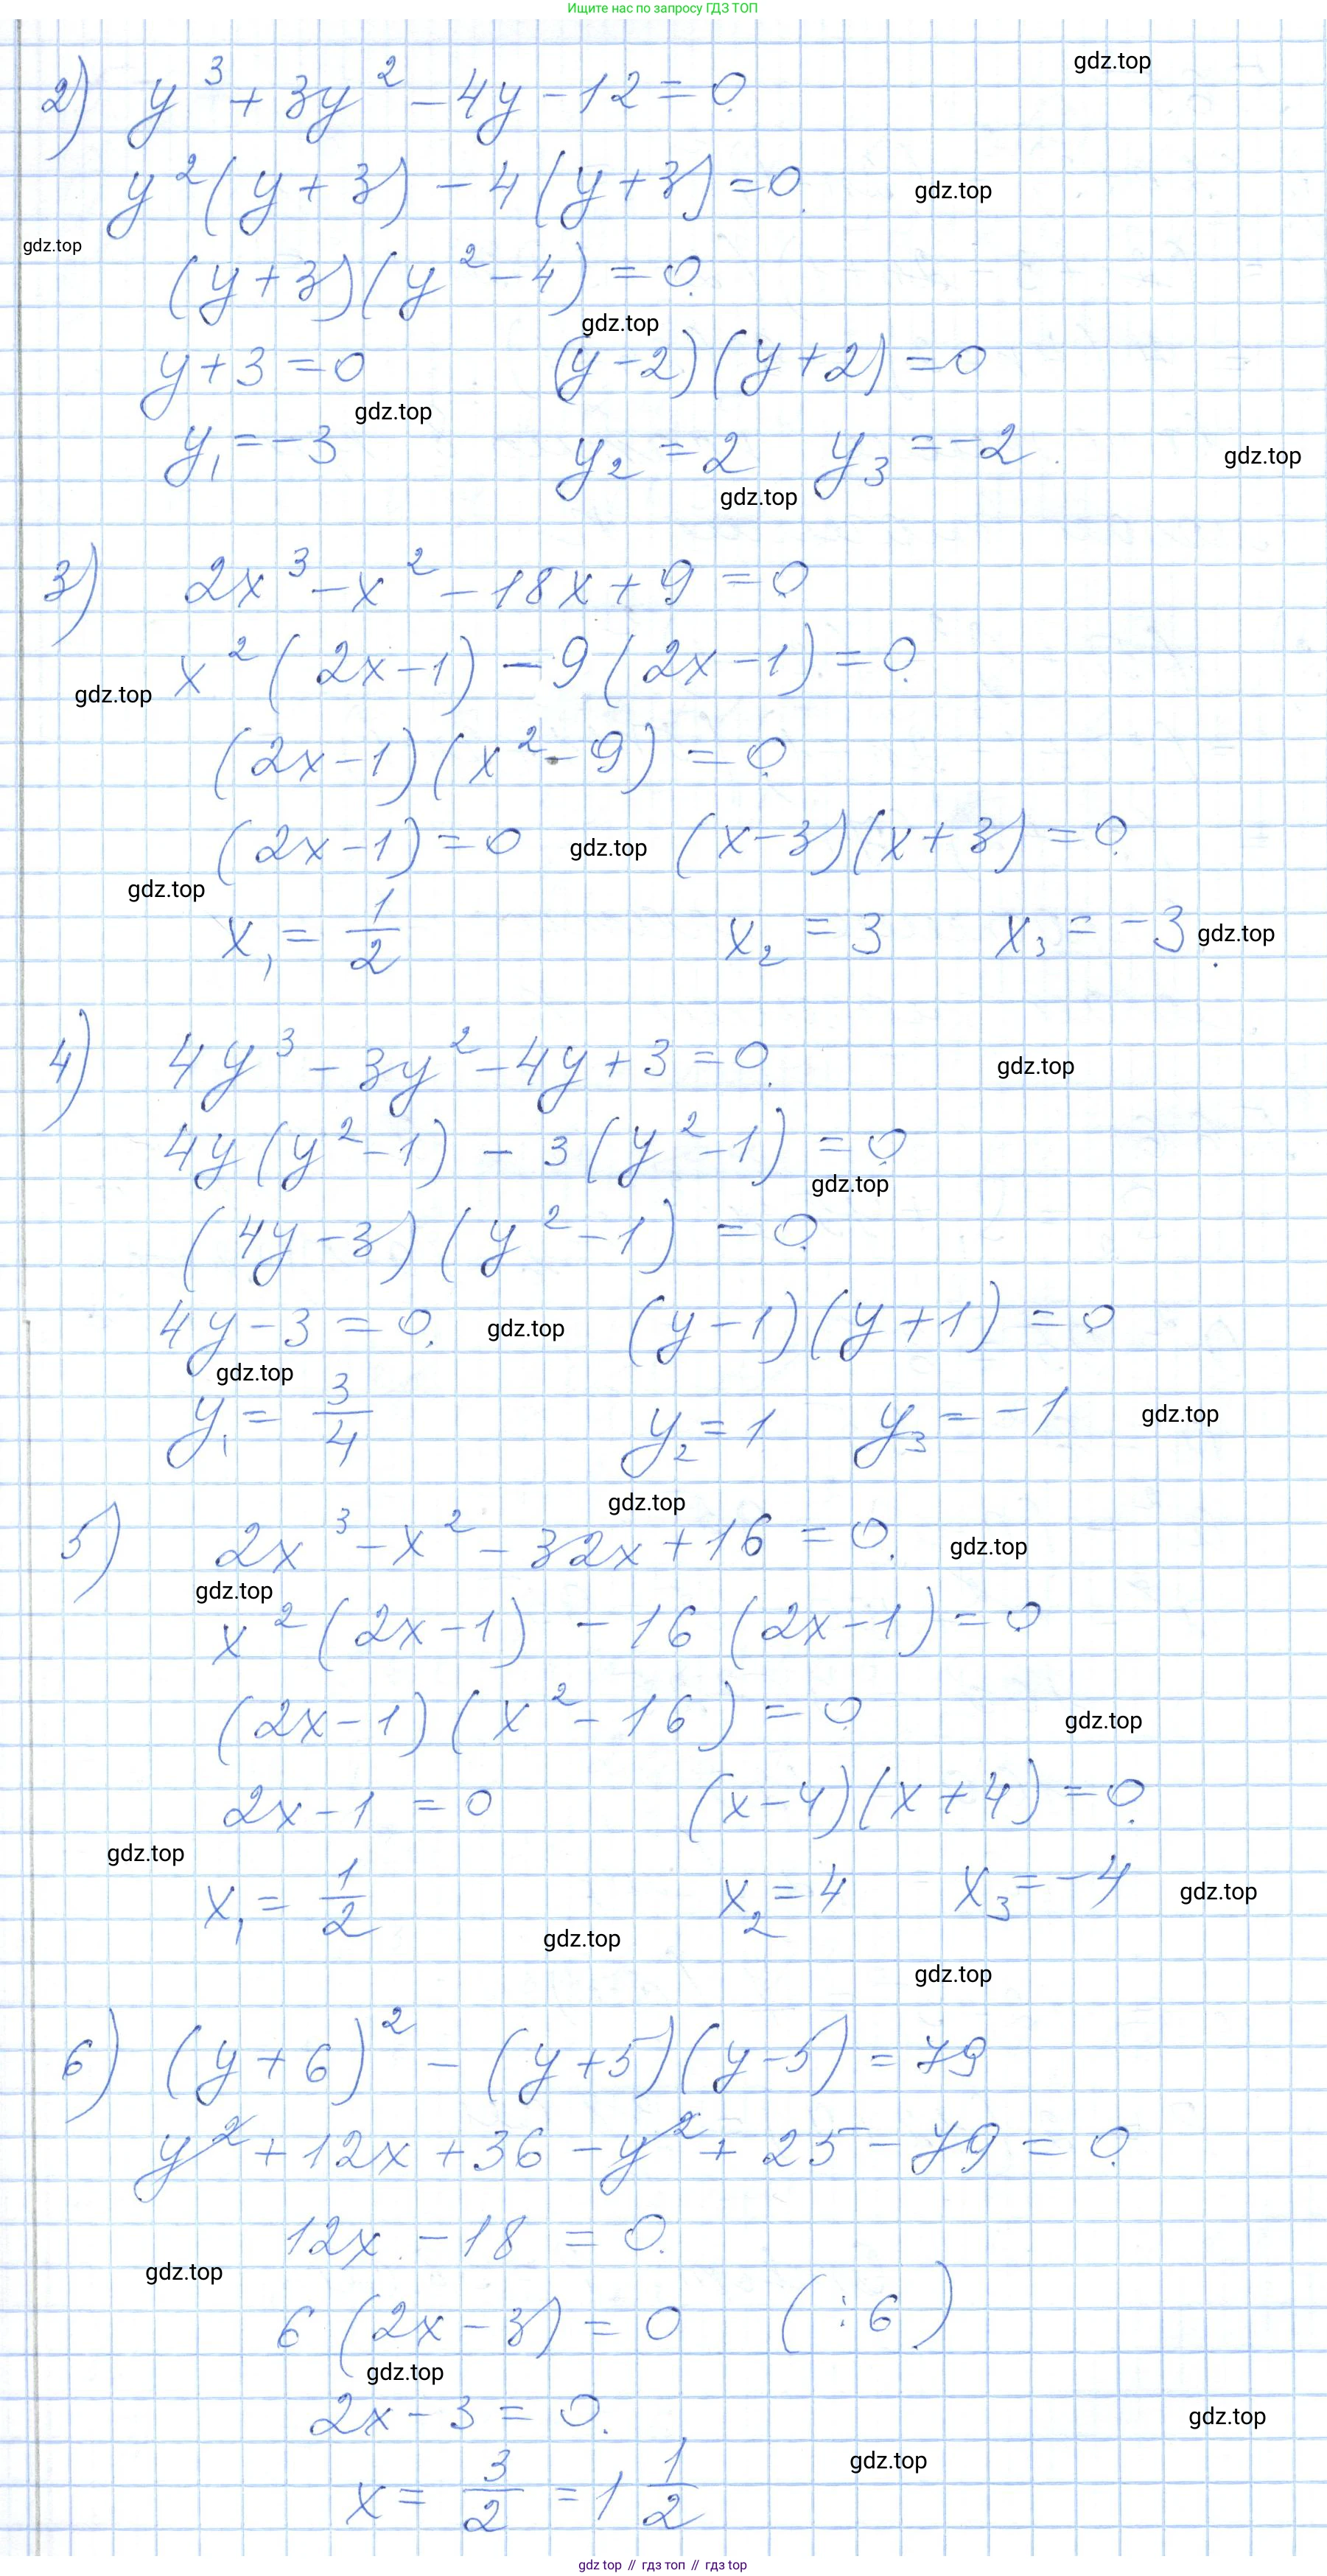 Ищите нас по запросу ГДЗ ТОП
gdz.top
2) y³ + 3y² - 4y - 12 = 0.
y²(y + 3) - 4(y + 3) = 0.
gdz.top
gdz.top
(y + 3)(y² - 4) = 0.
gdz.top
y + 3 = 0 (y - 2)(y + 2) = 0
gdz.top
y₁ = -3 y₂ = 2 y₃ = -2.
gdz.top
gdz.top
3) 2x³ - x² - 18x + 9 = 0.
x²(2x - 1) - 9(2x - 1) = 0.
gdz.top
(2x - 1)(x² - 9) = 0.
(2x - 1) = 0 gdz.top (x - 3)(x + 3) = 0.
gdz.top
x₁ = 1/2 x₂ = 3 x₃ = -3. gdz.top
4) 4y³ - 3y² - 4y + 3 = 0.
gdz.top
4y(y² - 1) - 3(y² - 1) = 0.
gdz.top
(4y - 3)(y² - 1) = 0.
4y - 3 = 0. gdz.top (y - 1)(y + 1) = 0.
gdz.top
y₁ = 3/4 y₂ = 1 y₃ = -1 gdz.top
gdz.top
5) 2x³ - x² - 32x + 16 = 0. gdz.top
gdz.top
x²(2x - 1) - 16(2x - 1) = 0.
(2x - 1)(x² - 16) = 0. gdz.top
2x - 1 = 0 (x - 4)(x + 4) = 0.
gdz.top
x₁ = 1/2 x₂ = 4 x₃ = -4 gdz.top
gdz.top
gdz.top
6) (y + 6)² - (y + 5)(y - 5) = 79
y² + 12x + 36 - y² + 25 - 79 = 0.
12x - 18 = 0.
gdz.top
6(2x - 3) = 0 (:6)
gdz.top
2x - 3 = 0.
gdz.top
gdz.top
x = 3/2 = 1 1/2
gdz top // гдз топ // гдз top